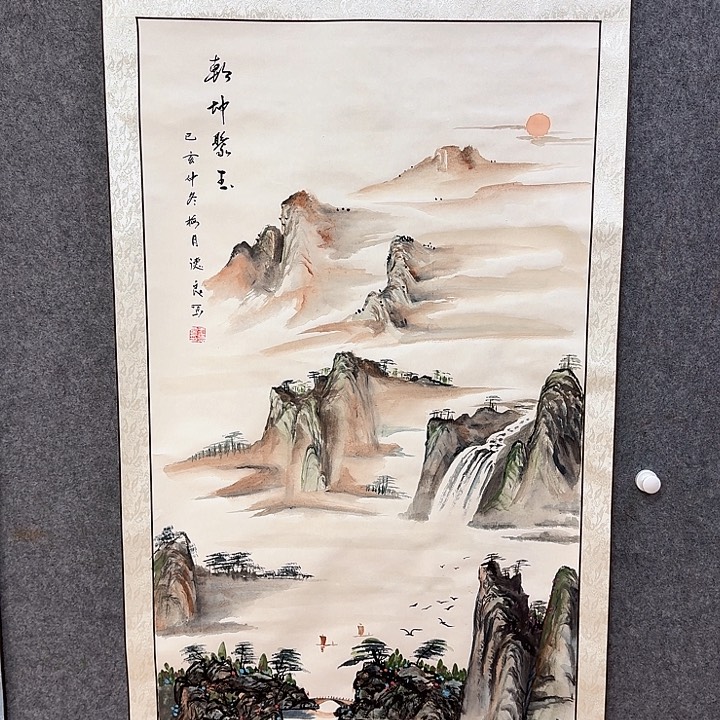 乾坤聚玉
己亥仲冬梅月德良写